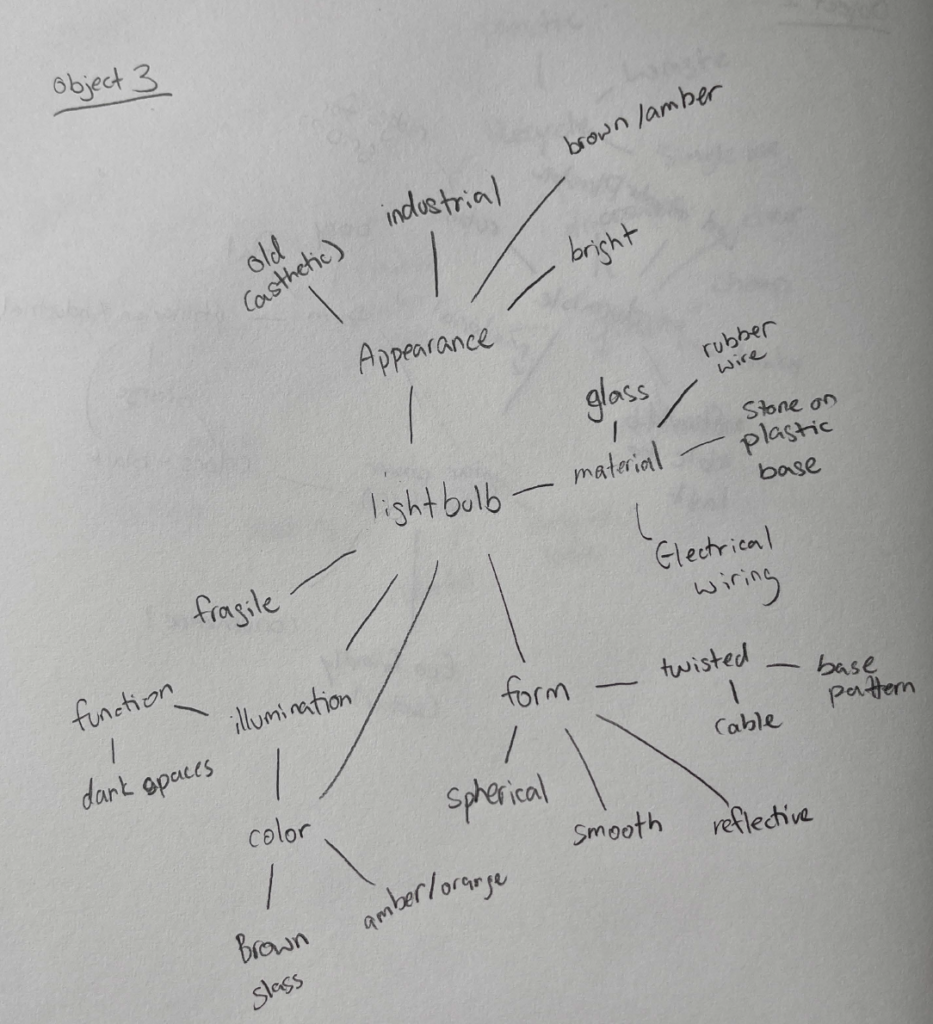 Object 3
brown/amber
industrial
old
(asthetic)
bright
Appearance
rubber
wire
glass
Stone on
plastic
base
material
lightbulb
Electrical
wiring
fragile
twisted
base
pattern
form
function
illumination
cable
dark spaces
spherical
smooth
reflective
color
amber/orange
Brown
glass